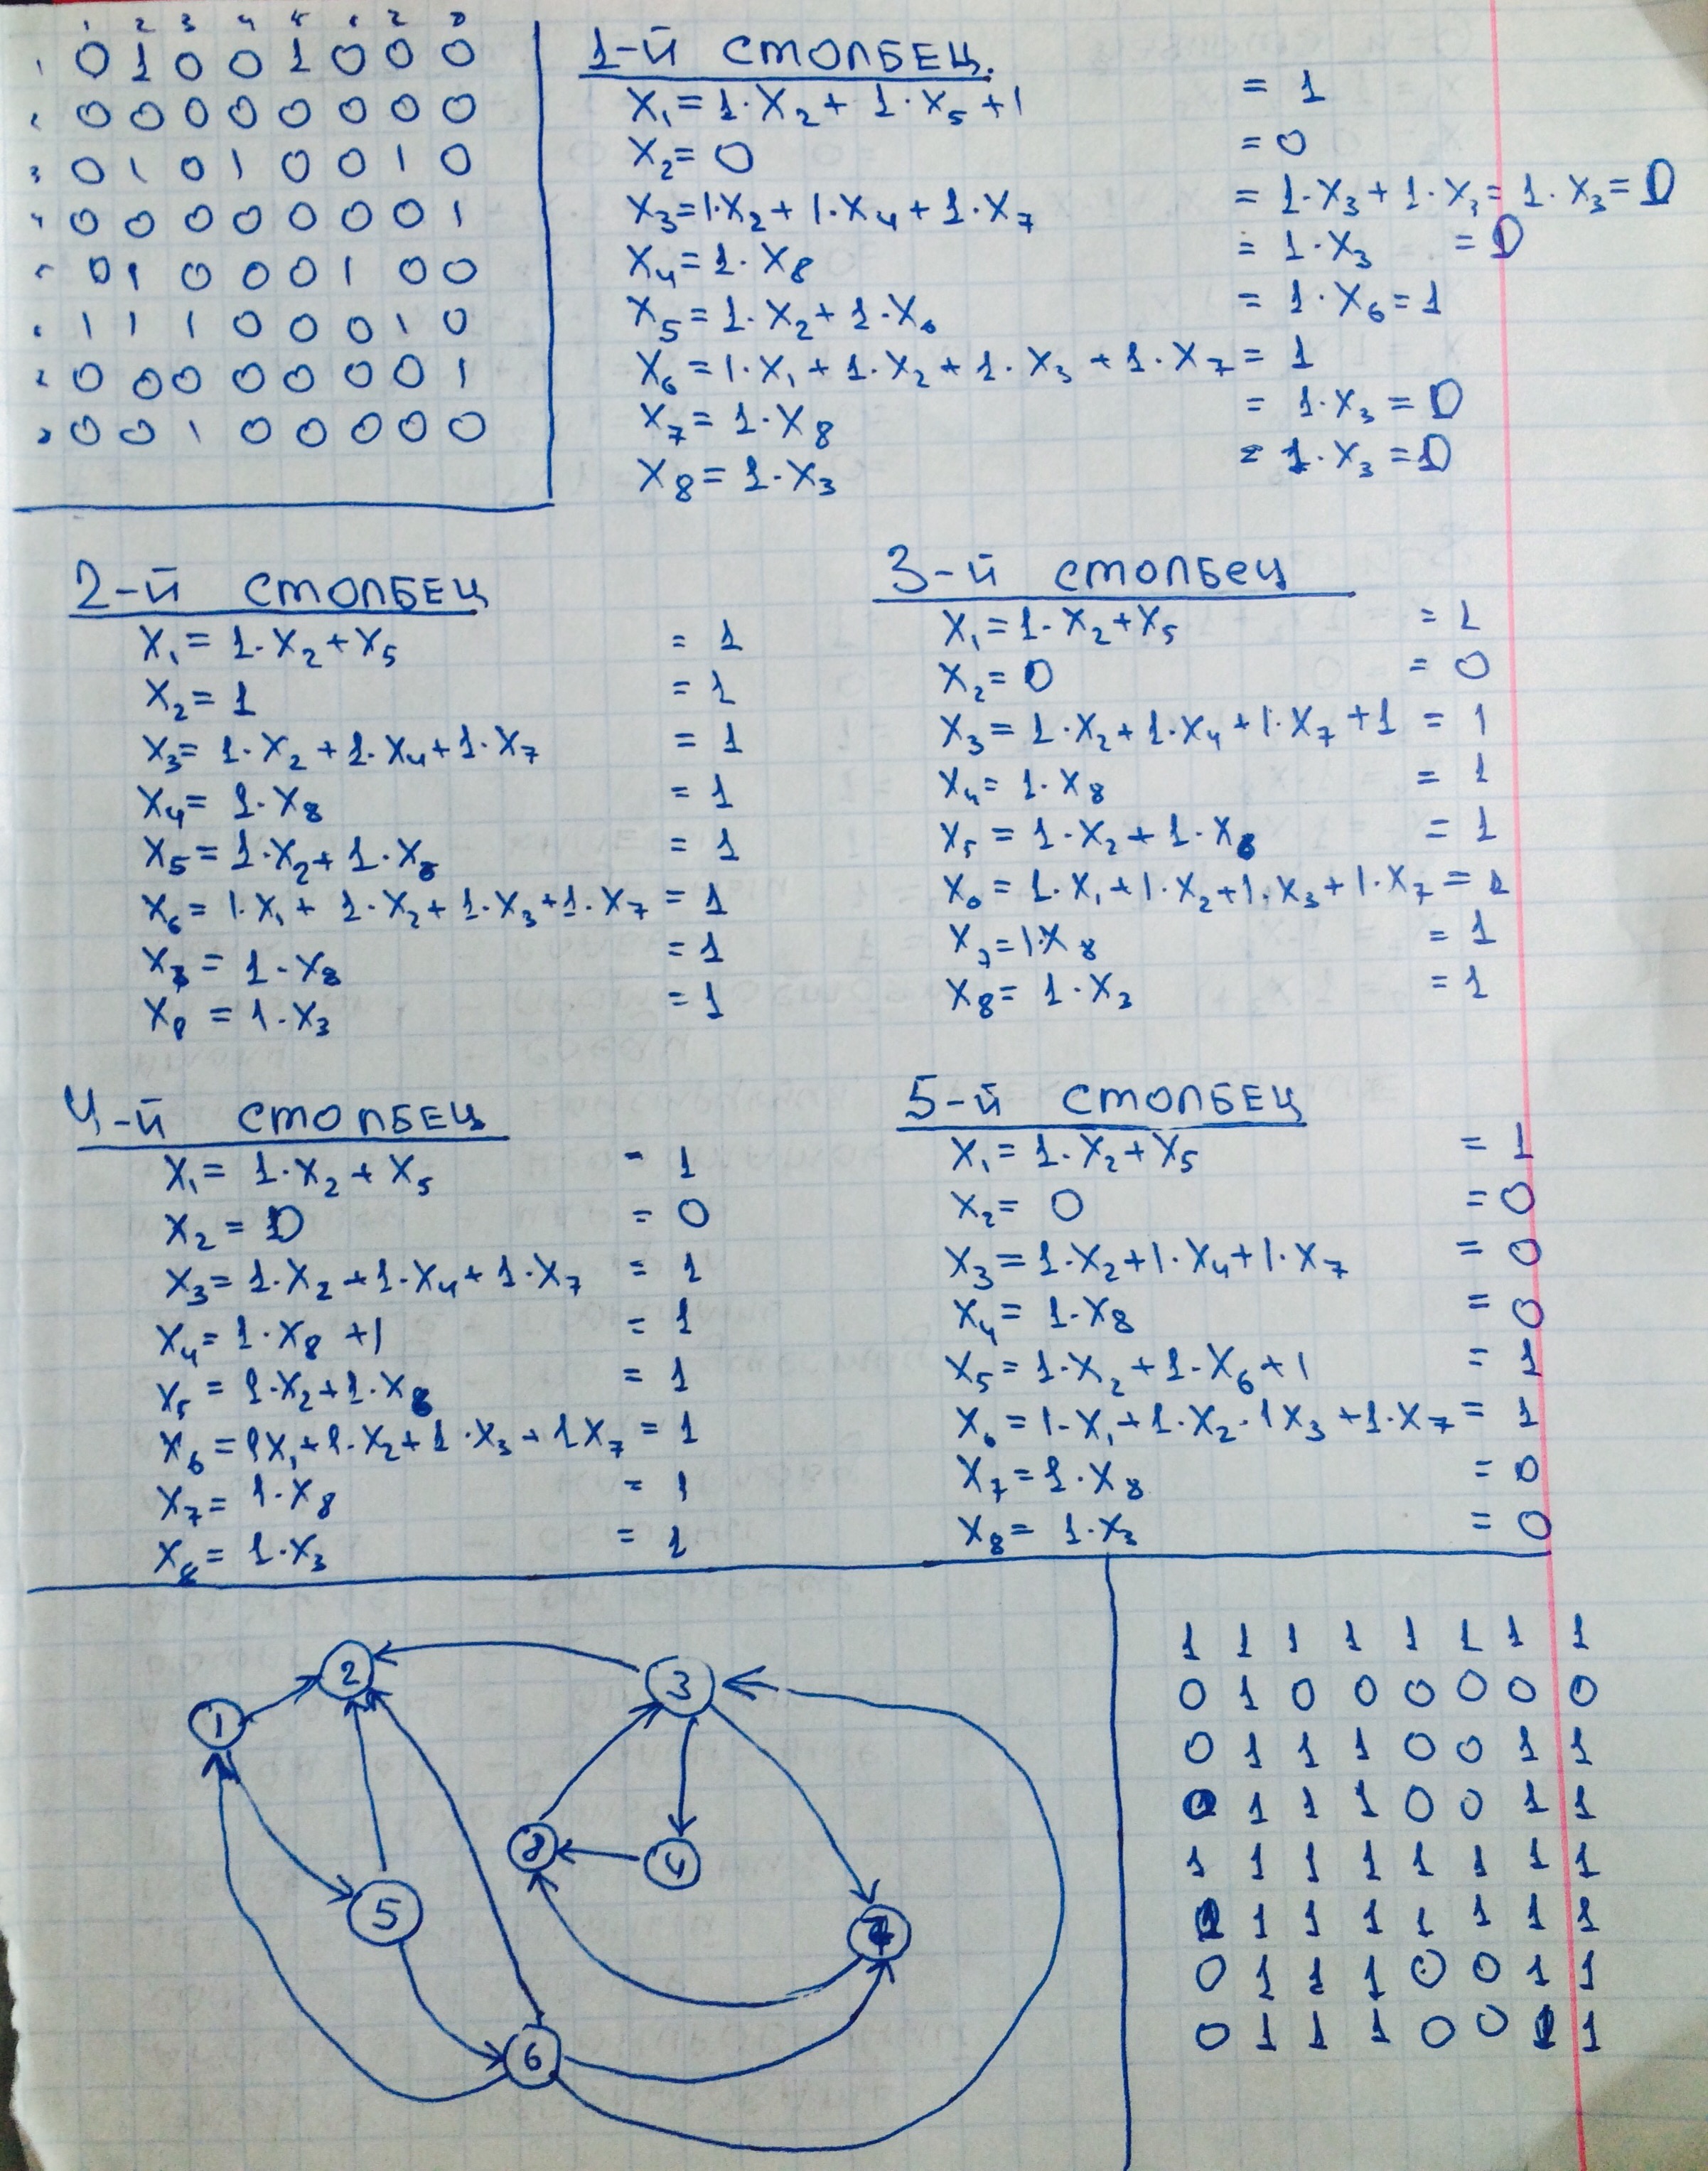 1 2 3 4 5 6 7 8
1 0 1 0 0 1 0 0 0
2 0 0 0 0 0 0 0 0
3 0 1 0 1 0 0 1 0
4 0 0 0 0 0 0 0 1
5 0 1 0 0 0 1 0 0
6 1 1 1 0 0 0 1 0
7 0 0 0 0 0 0 0 1
8 0 0 1 0 0 0 0 0
1-й столбец.
X₁ = 1·X₂ + 1·X₅ + 1 = 1
X₂ = 0 = 0
X₃ = 1·X₂ + 1·X₄ + 1·X₇ = 1·X₃ + 1·X₃ = 1·X₃ = 0
X₄ = 1·X₈ = 1·X₃ = 0
X₅ = 1·X₂ + 1·X₆ = 1·X₆ = 1
X₆ = 1·X₁ + 1·X₂ + 1·X₃ + 1·X₇ = 1
X₇ = 1·X₈ = 1·X₃ = 0
X₈ = 1·X₃ = 1·X₃ = 0
2-й столбец
X₁ = 1·X₂ + X₅ = 1
X₂ = 1 = 1
X₃ = 1·X₂ + 1·X₄ + 1·X₇ = 1
X₄ = 1·X₈ = 1
X₅ = 1·X₂ + 1·X₆ = 1
X₆ = 1·X₁ + 1·X₂ + 1·X₃ + 1·X₇ = 1
X₇ = 1·X₈ = 1
X₈ = 1·X₃ = 1
3-й столбец
X₁ = 1·X₂ + X₅ = 1
X₂ = 0 = 0
X₃ = 1·X₂ + 1·X₄ + 1·X₇ + 1 = 1
X₄ = 1·X₈ = 1
X₅ = 1·X₂ + 1·X₆ = 1
X₆ = 1·X₁ + 1·X₂ + 1·X₃ + 1·X₇ = 1
X₇ = 1·X₈ = 1
X₈ = 1·X₃ = 1
4-й столбец
X₁ = 1·X₂ + X₅ = 1
X₂ = 0 = 0
X₃ = 1·X₂ + 1·X₄ + 1·X₇ = 1
X₄ = 1·X₈ + 1 = 1
X₅ = 1·X₂ + 1·X₆ = 1
X₆ = 1X₁ + 1·X₂ + 1·X₃ + 1X₇ = 1
X₇ = 1·X₈ = 1
X₈ = 1·X₃ = 1
5-й столбец
X₁ = 1·X₂ + X₅ = 1
X₂ = 0 = 0
X₃ = 1·X₂ + 1·X₄ + 1·X₇ = 0
X₄ = 1·X₈ = 0
X₅ = 1·X₂ + 1·X₆ + 1 = 1
X₆ = 1·X₁ + 1·X₂·1X₃ + 1·X₇ = 1
X₇ = 1·X₈ = 0
X₈ = 1·X₃ = 0
2
3
1
8
4
5
7
6
1 1 1 1 1 1 1 1
0 1 0 0 0 0 0 0
0 1 1 1 0 0 1 1
0 1 1 1 0 0 1 1
1 1 1 1 1 1 1 1
1 1 1 1 1 1 1 1
0 1 1 1 0 0 1 1
0 1 1 1 0 0 1 1